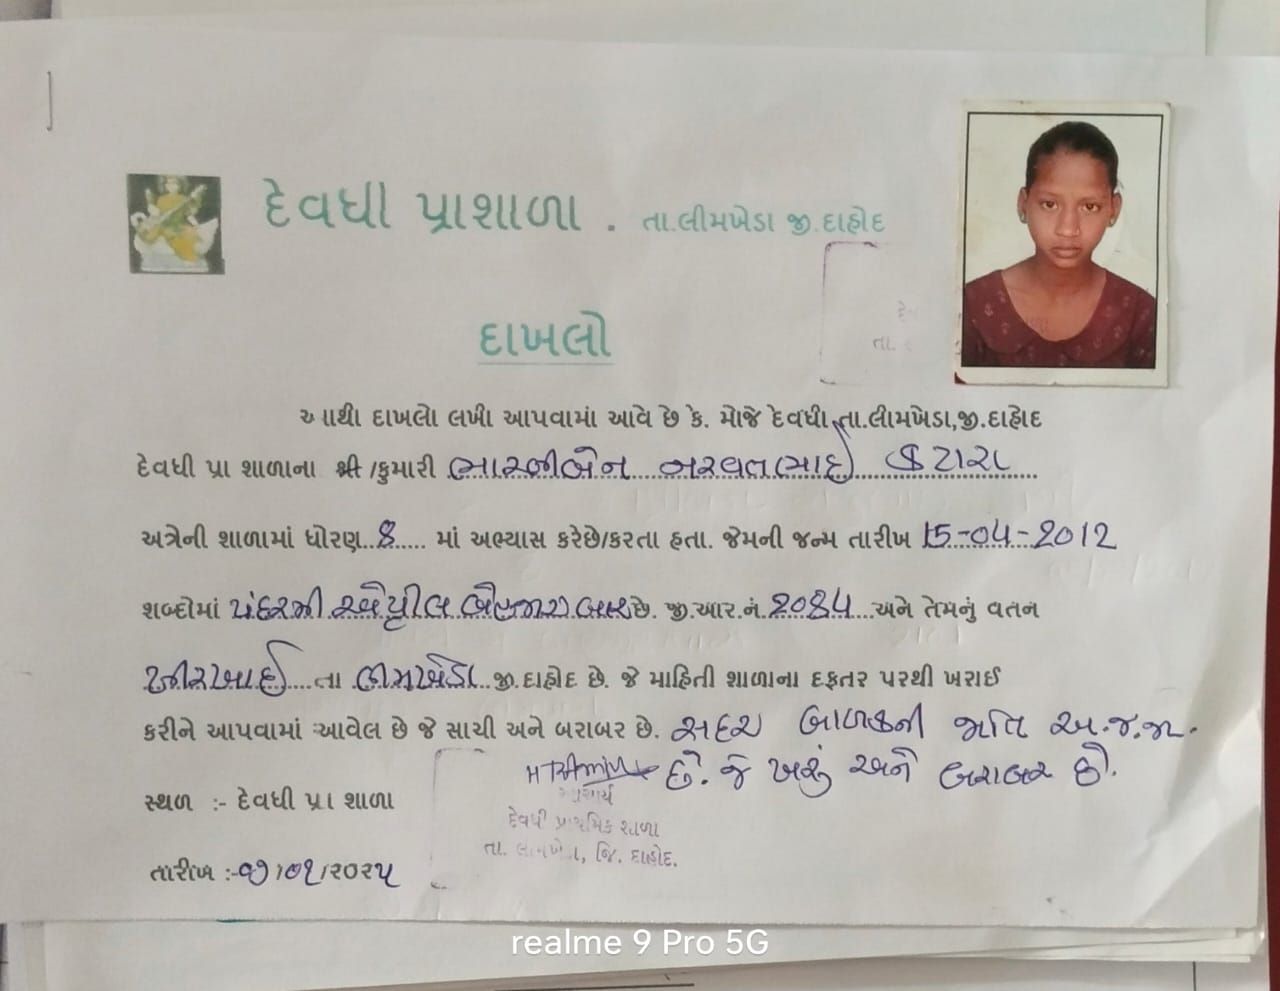 દેવધી પ્રાશાળા . તા.લીમખેડા જી.દાહોદ
દાખલો
આથી દાખલો લખી આપવામાં આવે છે કે. મોજે દેવધી,તા.લીમખેડા,જી.દાહોદ
દેવધી પ્રા શાળાના શ્રી /કુમારી ભારતીબેન બરવતભાઈ કટારા
અત્રેની શાળામાં ધોરણ..8..... માં અભ્યાસ કરેછે/કરતા હતા. જેમની જન્મ તારીખ 15-04-2012
શબ્દોમાં પંદરમી એપ્રીલ બેહજાર બાર છે. જી.આર.નં. અને તેમનું વતન
તા જી.દાહોદ છે. જે માહિતી શાળાના દફતર પરથી ખરાઈ
કરીને આપવામાં આવેલ છે જે સાચી અને બરાબર છે. સદર બાળકની જાતિ અ.જ.જા.
છે. જે ખરું અને બરાબર છે.
સ્થળ :- દેવધી પ્રા શાળા
આચાર્ય
દેવધી પ્રાથમિક શાળા
તા. લીમખેડા, જિ. દાહોદ.
તારીખ :-
realme 9 Pro 5G